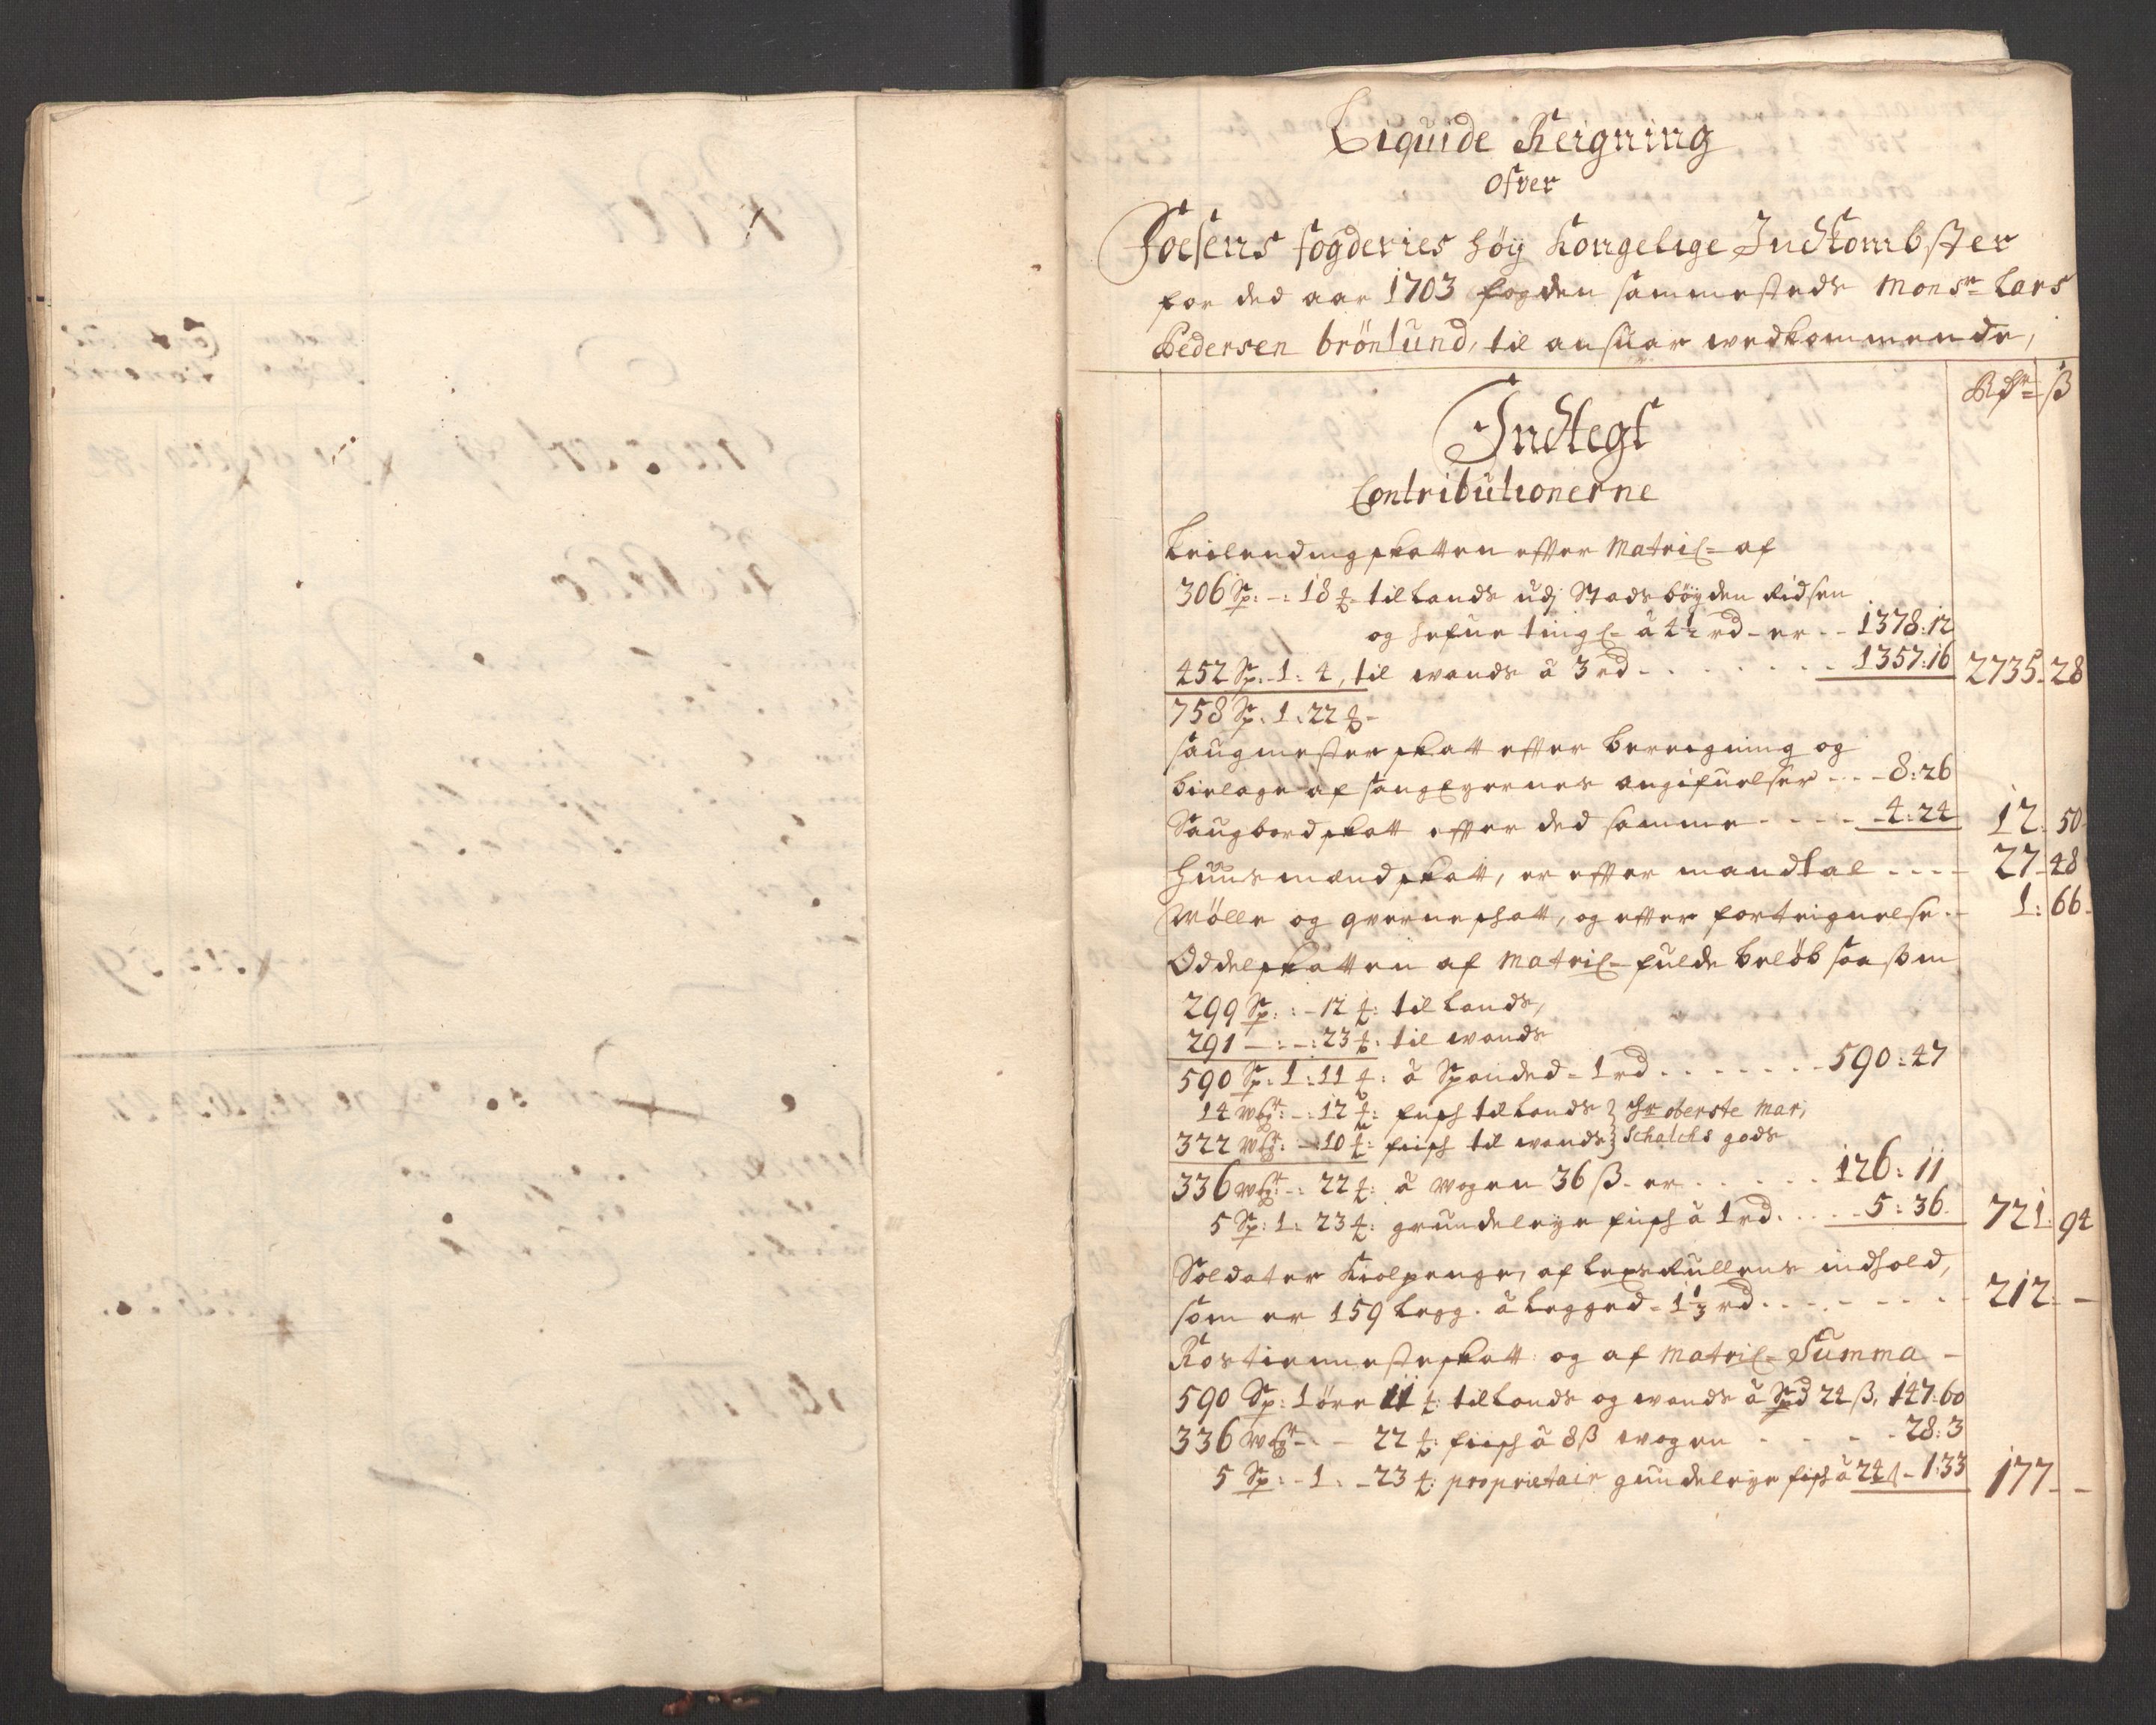 Liquide Reigning
Ofver
Foesens fogderies höy Kongelige Indkombster
for ded aar 1703 fogden sammesteds Monsr Lars
Pedersen brönlund, til ansuar wedkommende,
Rdr ß
Indtegt
Contributionerne
Leilendingskatten effter Matric= af
306 Sp: -: 18 ℔ til Lands udj Stadsböyden Ridsen
og Hefne tingl= â 4½ rd - er - - 1378:12
452 Sp: 1: 4, til wands â 3 rd - - - - 1357:16 2735-28
758 Sp: 1: 22 ℔ -
Saugmesterskatt effter bereigning og
bielage af saugEyernes angifuelser - - - 8:26
Saugbordskatt effter ded samme - - - - 4:24 12:50
Huusmandskatt, er effter mandtal - - - - 27-48
Mölle og qverneskatt, og effter forteignelse - 1:66
Oddelskatten af Matric= fulde beløb saasom
299 Sp: :-12 ℔: til Lands,
291 -:-: 23 ℔: til wands
590 Sp: 1: 11 ℔: â Spanded = 1 rd - - - - - 590:47
14 wgr: -: 12 ℔: fisch til Lands } Hr oberste Mar,
322 wgr: -:10 ℔: fisch til wands } Schalchs gods
336 wgr: -: 22 ℔: â wogen 36 ß - er - - - - 126:11
5 Sp: 1: 23 ℔: grundeleye fisch â 1 rd - - - - 5:36 721:94
Soldater Kiolpenge, af LegsRullens indhold,
som er 159 Legg. â Legged - 1⅓ rd - - - - 212:-
Rostiennesteskatt og af Matric= Summa -
590 Sp: 1 öre 11 ℔: til Lands og wands â Spd 24 ß, 147:60
336 wgr - - 22 ℔: fisch â 8 ß wogen - - - - 28:3
5 Sp: - 1: - 23 ℔: proprietair gundeleye fisch â 24 ß - 1:33 177--